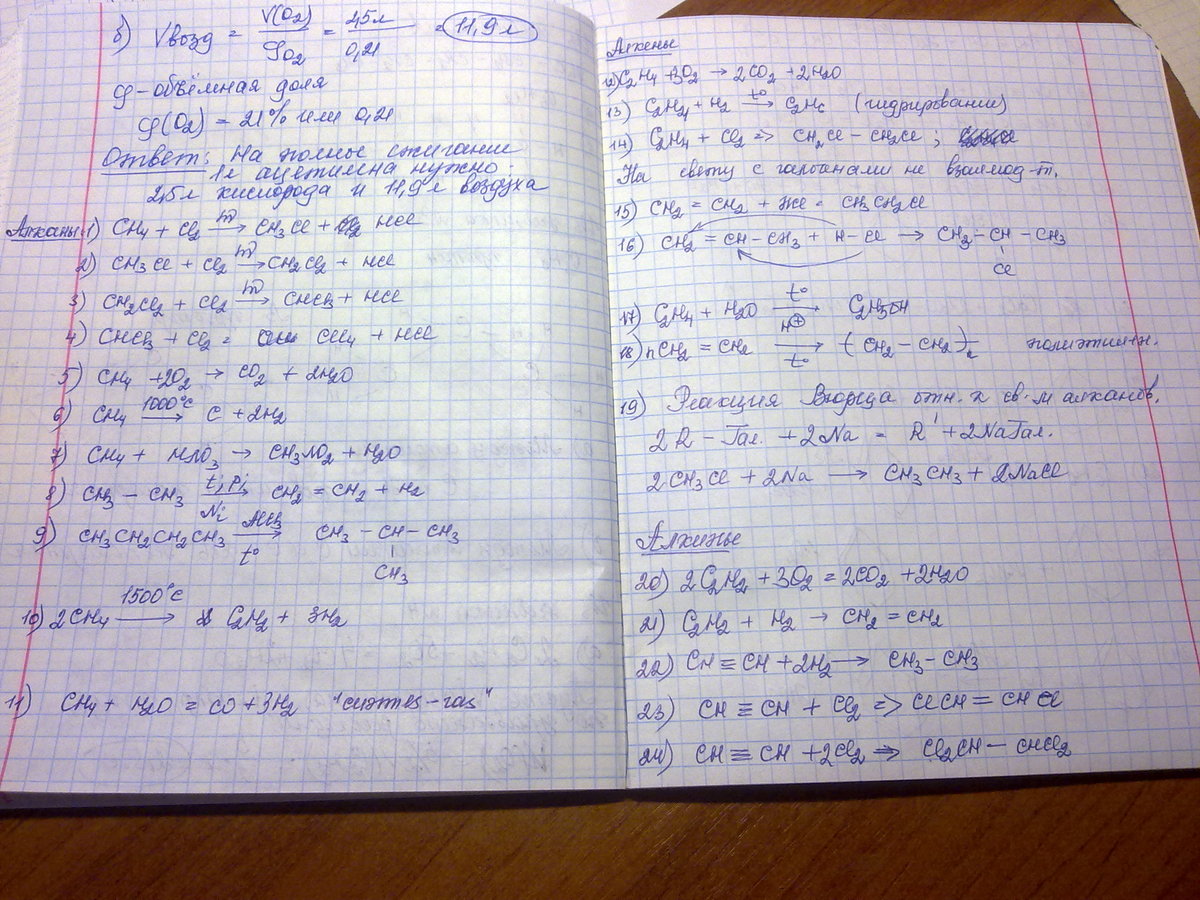 б) Vвозд = V(O₂)/φO₂ = 2,5л/0,21 = 11,9 л
φ – объёмная доля
φ(O₂) = 21% или 0,21
Ответ: на полное сжигание
1л ацетилена нужно
2,5л кислорода и 11,9л воздуха
Алканы
1) CH₄ + Cl₂ →(hν) CH₃Cl + HCl
2) CH₃Cl + Cl₂ →(hν) CH₂Cl₂ + HCl
3) CH₂Cl₂ + Cl₂ →(hν) CHCl₃ + HCl
4) CHCl₃ + Cl₂ = CCl₄ + HCl
5) CH₄ + 2O₂ → CO₂ + 2H₂O
6) CH₄ →(1000°C) C + 2H₂
7) CH₄ + HNO₃ → CH₃NO₂ + H₂O
8) CH₃ – CH₃ →(t; p; Ni) CH₂ = CH₂ + H₂
9) CH₃CH₂CH₂CH₃ →(AlCl₃, t°) CH₃ – CH – CH₃
CH₃
10) 2CH₄ →(1500°C) C₂H₂ + 3H₂
11) CH₄ + H₂O = CO + 3H₂ "синтез-газ"
Алкены
12) C₂H₄ + 3O₂ → 2CO₂ + 2H₂O
13) C₂H₄ + H₂ →(t°) C₂H₆ (гидрирование)
14) C₂H₄ + Cl₂ => CH₂Cl – CH₂Cl ;
На свету с галогенами не взаимод-т.
15) CH₂ = CH₂ + HCl = CH₃CH₂Cl
16) CH₂ = CH – CH₃ + H – Cl → CH₃ – CH – CH₃
Cl
17) C₂H₄ + H₂O →(t°, H⊕) C₂H₅OH
18) nCH₂ = CH₂ →(t°) (– CH₂ – CH₂ –)n полиэтилен.
19) Реакция Вюрца отн. к св-м алканов.
2R – Гал. + 2Na = R' + 2NaГал.
2CH₃Cl + 2Na → CH₃CH₃ + 2NaCl
Алкины
20) 2C₂H₂ + 3O₂ = 2CO₂ + 2H₂O
21) C₂H₂ + H₂ → CH₂ = CH₂
22) CH ≡ CH + 2H₂ → CH₃ – CH₃
23) CH ≡ CH + Cl₂ => ClCH = CHCl
24) CH ≡ CH + 2Cl₂ => Cl₂CH – CHCl₂